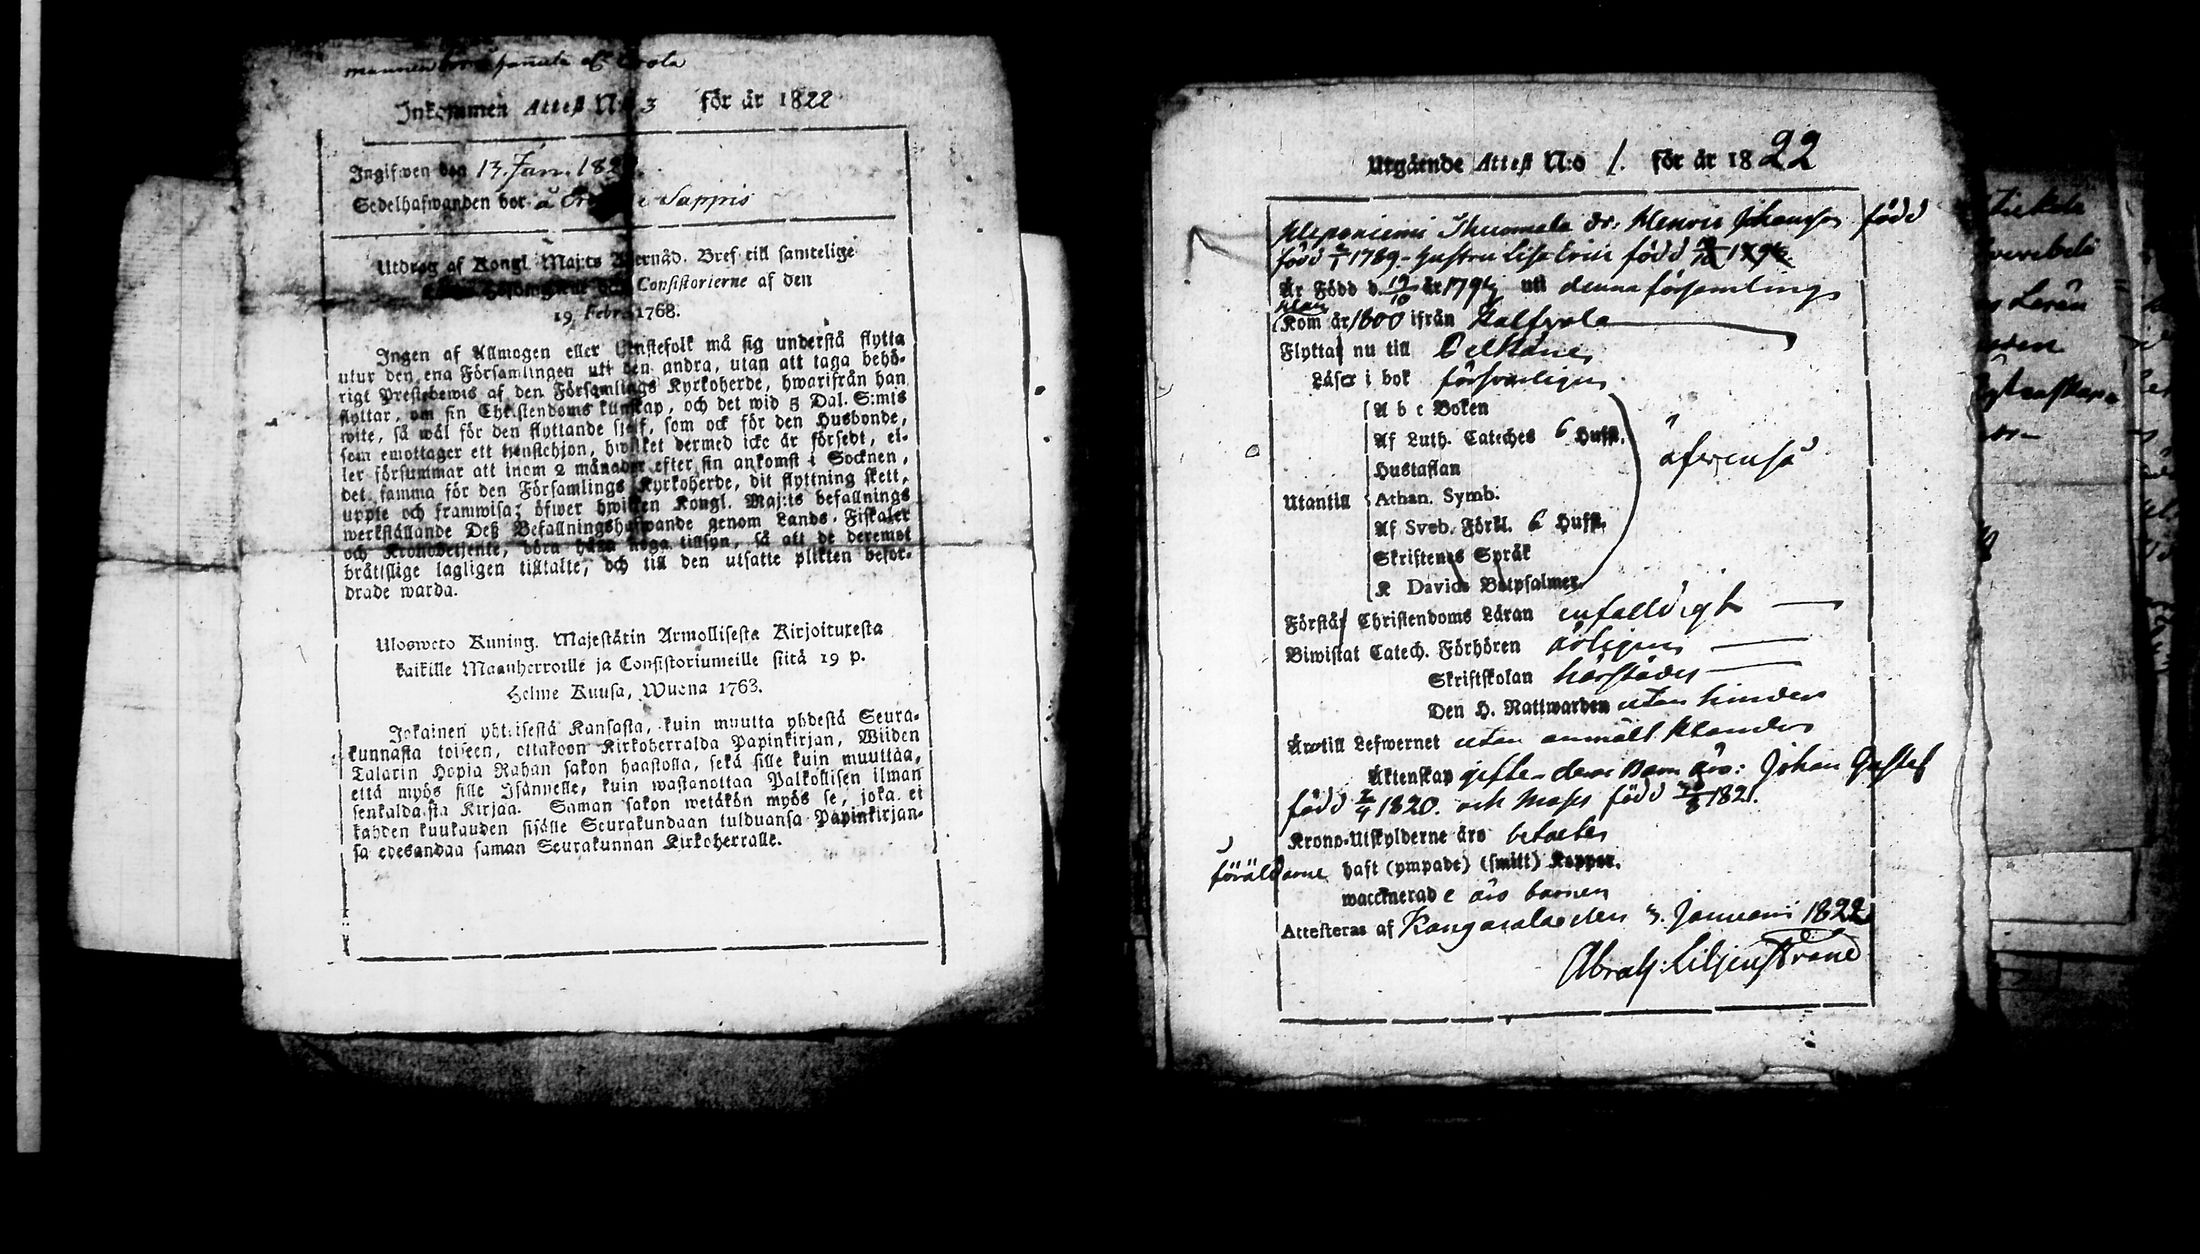 mannen
Inkommen Attest N:o 3 för år 1822
Ingifwen den 13. Jan. 182
Sedelhafwanden bor å Sappis
Utdrag af Kongl. Maj:ts Bref till samtelige
Consistorierne af den
19 Febr. 1768.
Ingen af Allmogen eller tjenstefolk må sig understå flytta
utur den ena Församlingen uti den andra, utan att taga behö-
rigt Prestebewis af den Församlings Kyrkoherde, hwarifrån han
flyttar, om sin Christendoms kunskap, och det wid 5 Dal. S:mts
wite, så wäl för den flyttande sjelf, som ock för den Husbonde,
som emottager ett tjenstehjon, hwilket dermed icke är försedt, el-
ler försummar att inom 2 månader efter sin ankomst i Socknen,
det samma för den Församlings Kyrkoherde, dit flyttning skett,
uppte och framwisa; öfwer hwilken Kongl. Maj:ts befallnings
werkställande Deß Befallningshafwande genom Lands-Fiskaler
och Kronobetjente, böra hafwa noga tillsyn, så att de deremot
bråttslige lagligen tilltalte, och till den utsatte plikten befor-
drade warda.
Ulosweto Kuning. Majestätin Armollisesta Kirjoituxesta
kaikille Maanherroille ja Consistoriumeille siitä 19 p.
Helme Kuusa, Wuona 1763.
Jokainen yhteisestä Kansasta, kuin muutta yhdestä Seura-
kunnasta toiseen, ottakoon Kirkoherralda Papinkirjan, Wiiden
Talarin Hopia Rahan sakon haastolla, sekä sille kuin muuttaa,
että myös sille Isännelle, kuin wastanottaa Palkollisen ilman
senkaldaista Kirjaa. Saman sakon wetäkön myös se, joka ei
kahden kuukauden sisälle Seurakundaan tulduansa Papinkirjan-
sa edesandaa saman Seurakunnan Kirkoherralle.
Utgående Attest N:o 1. för år 1822
dr. Henric Johansson född
född 1789 - Gustava Lisa född
Är Född d. 19/10 år 179 uti denna församling
Kom år 1800 ifrån Kalfvola
Flyttar nu till Pelkäne
Läser i bok försvarligen
Utantill
A b c Boken
Af Luth. Cateches 6 Hufst.
Hustaflan
Athan. Symb.
Af Sveb. Förkl. 6 Hufst.
Skriftenes Språk
K Davids Botpsalmer.
äfvenså
Förstår Christendoms Läran enfalldigt
Biwistat Catech. Förhören årligen
Skriftskolan härstädes
Den H. Nattwarden utan hinder
Är till Lefwernet utan anmält klander
Äktenskap gifte - deras Barn äro: Johan Gustaf
född 2/4 1820. och Moses född 1821.
Krono-Utskylderne äro betalte
föräldrarne haft (ympade) (smitt) Koppor.
waccinerade äro barnen
Attesteras af Kangasala den 3. Januarii 1822
Abrah: Liljenstrand